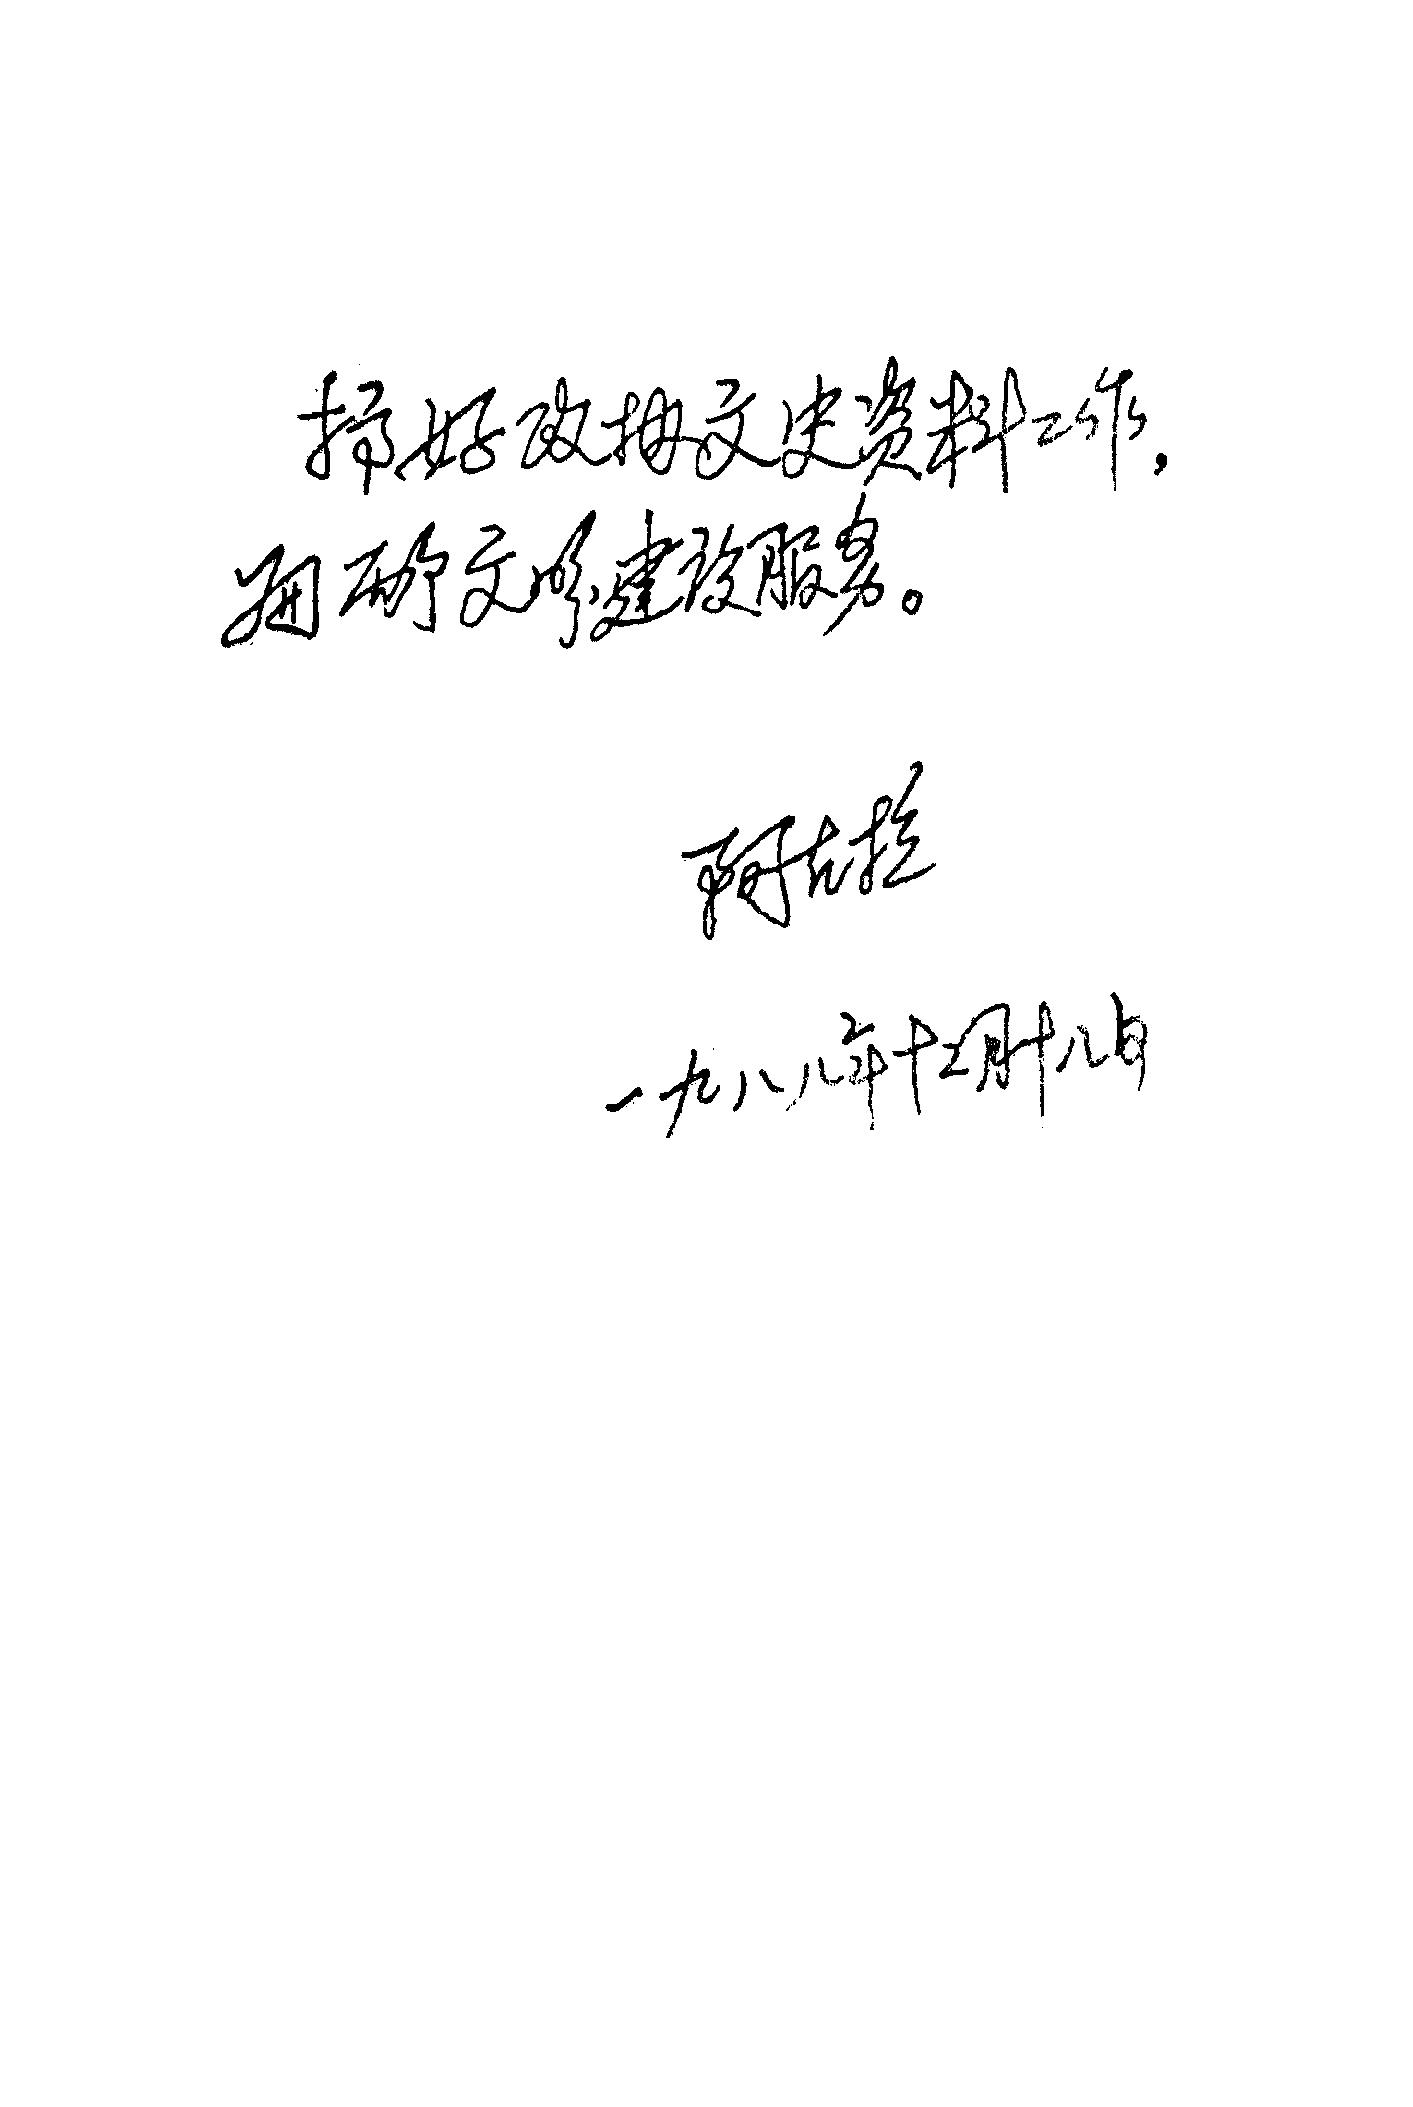 搞好政协文史资料工作，
为两个文明建设服务。
阿古拉
一九八八年十二月十八日